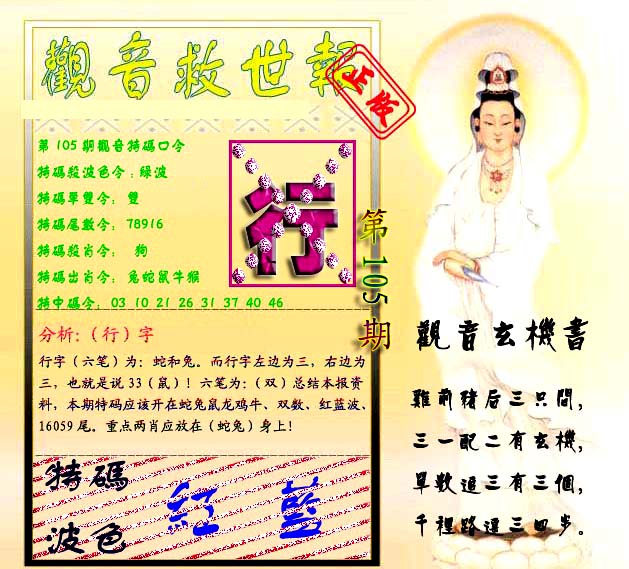 觀音救世報
正版
第105期觀音特碼口令
特碼殺波色令：綠波
特碼單雙令： 雙
特碼尾數令： 78916
特碼殺肖令： 狗
特碼出肖令： 兔蛇鼠牛猴
特中碼令： 03 10 21 26 31 37 40 46
行
第105期
分析:（行）字
行字（六笔）为：蛇和兔。而行字左边为三，右边为
三，也就是说 33（鼠）！六笔为：（双）总结本报资
料，本期特码应该开在蛇兔鼠龙鸡牛、双数、红蓝波、
16059 尾。重点两肖应放在（蛇兔）身上！
特碼
波色
紅 藍
觀音玄機書
雞前豬后三只間，
三一配二有玄機，
單数逼三有三個，
千裡路還三四步。